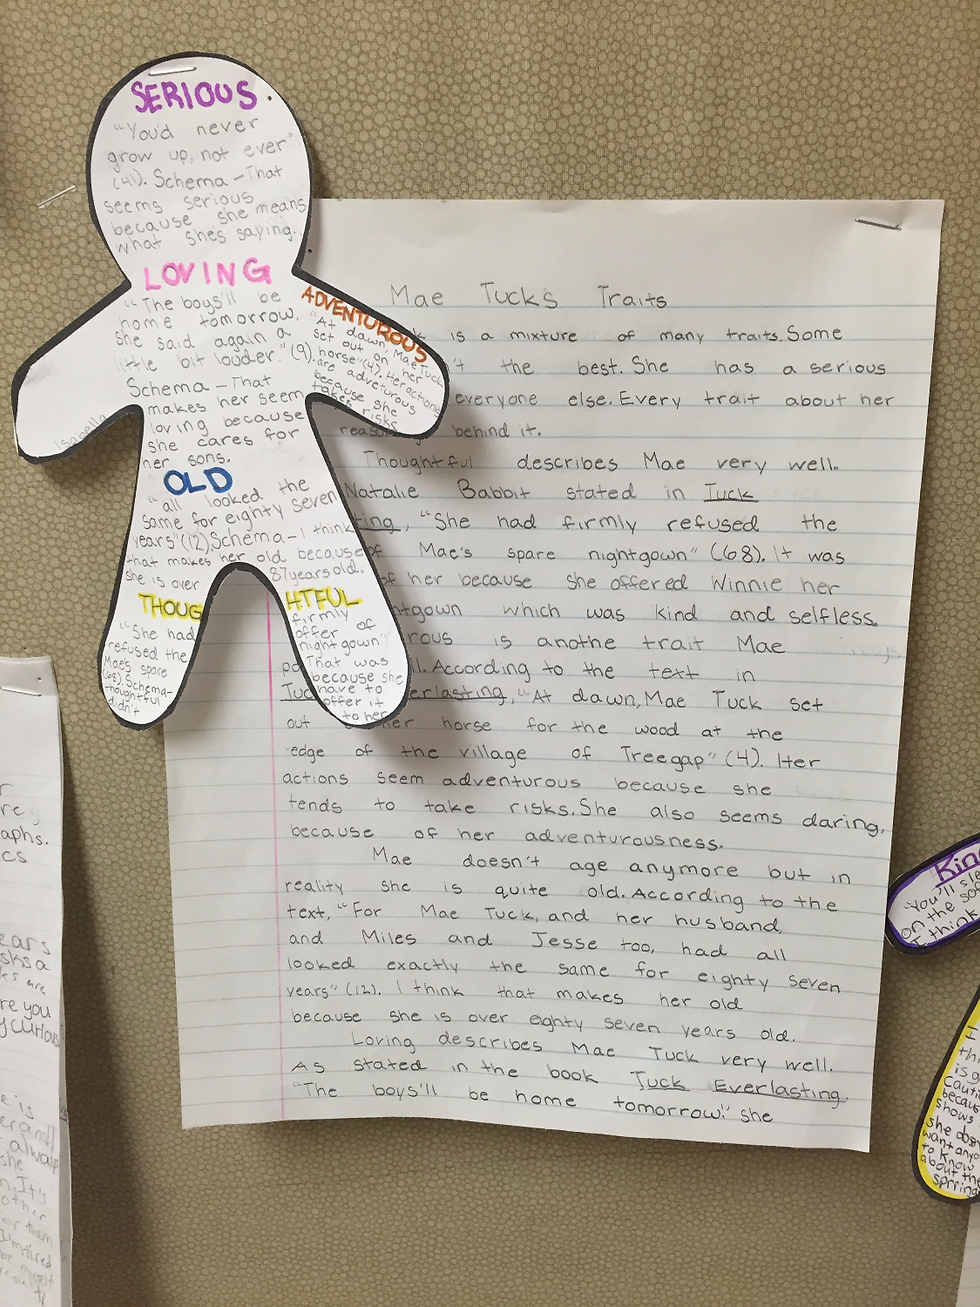 SERIOUS
"You'd never
grow up, not ever"
(41). Schema-That
seems serious
because she means
what she's saying.
LOVING
"The boys'll be
home tomorrow,
she said again a
little bit louder." (9)
Schema-That
makes her seem
loving because
she cares for
her sons.
ADVENTUROUS
"At dawn, Mae Tuck
set out on her
horse"(4). Her actions
are adveturous
because she
takes risks
Isabella
OLD
"all looked the
same for eighty seven
years"(12). Schema-I think
that makes her old because
she is over 87 years old.
THOUGHTFUL
"She had firmly
refused the offer of
Mae's spare nightgown"
(68). Schema- That was
thoughtful because she
didn't have to
offer it
to her
Mae Tuck's Traits
is a mixture of many traits. Some
't the best. She has a serious
everyone else. Every trait about her
behind it.
Thoughtful describes Mae very well.
Natalie Babbit stated in Tuck
ting, "She had firmly refused the
of Mae's spare nightgown" (68). It was
of her because she offered Winnie her
htgown which was kind and selfless.
rous is anothe trait Mae
According to the text in
Tuck erlasting, "At dawn, Mae Tuck set
out her horse for the wood at the
edge of the village of Treegap" (4). Her
actions seem adventurous because she
tends to take risks. She also seems daring,
because of her adventurousness.
Mae doesn't age anymore but in
reality she is quite old. According to the
text, "For Mae Tuck, and her husband,
and Miles and Jesse too, had all
looked exactly the same for eighty seven
years" (12). I think that makes her old
because she is over eighty seven years old.
Loving describes Mae Tuck very well.
As stated in the book Tuck Everlasting
"The boys'll be home tomorrow." she
aphs.
cs
ears
sks a
re you
curious
always
she
It's
other
or them
Kin
"You'll sle
on the so
I think
I
thi
is a
Cauti
becau
shows
she does
want anyo
to know
about the
spring